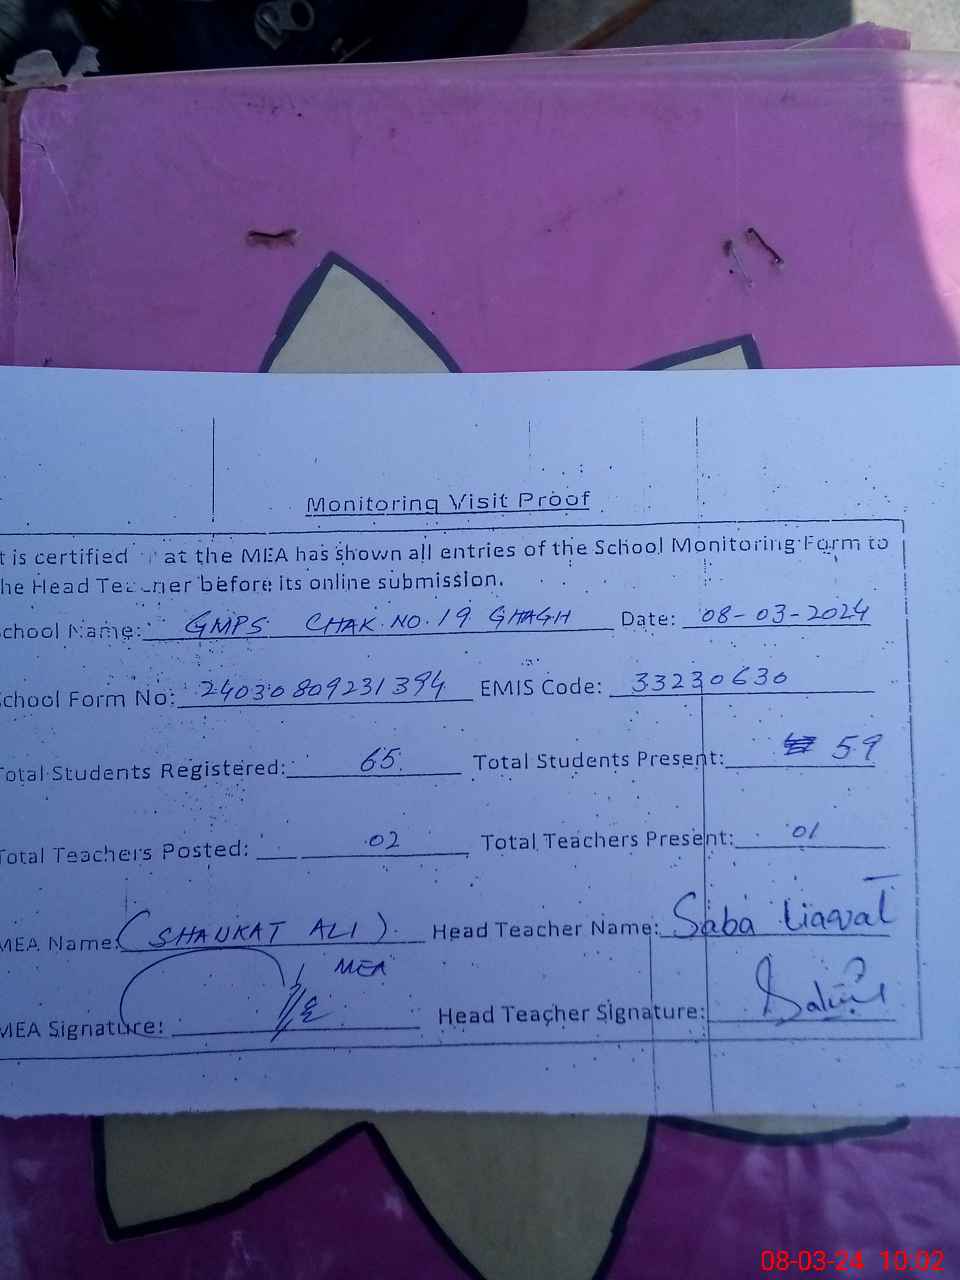 Monitoring Visit Proof
t is certified at the MEA has shown all entries of the School Monitoring Form to
he Head Teacher before its online submission.
chool Name: GMPS CHAK NO. 19 GHAGH Date: 08-03-2024
chool Form No: 24030809231394 EMIS Code: 33230630
Total Students Registered: 65 Total Students Present: 59
Total Teachers Posted: 02 Total Teachers Present: 01
MEA Name: (SHAUKAT ALI). Head Teacher Name: Saba Liaqat
MEA
MEA Signature: Head Teacher Signature:
08-03-24 10:02